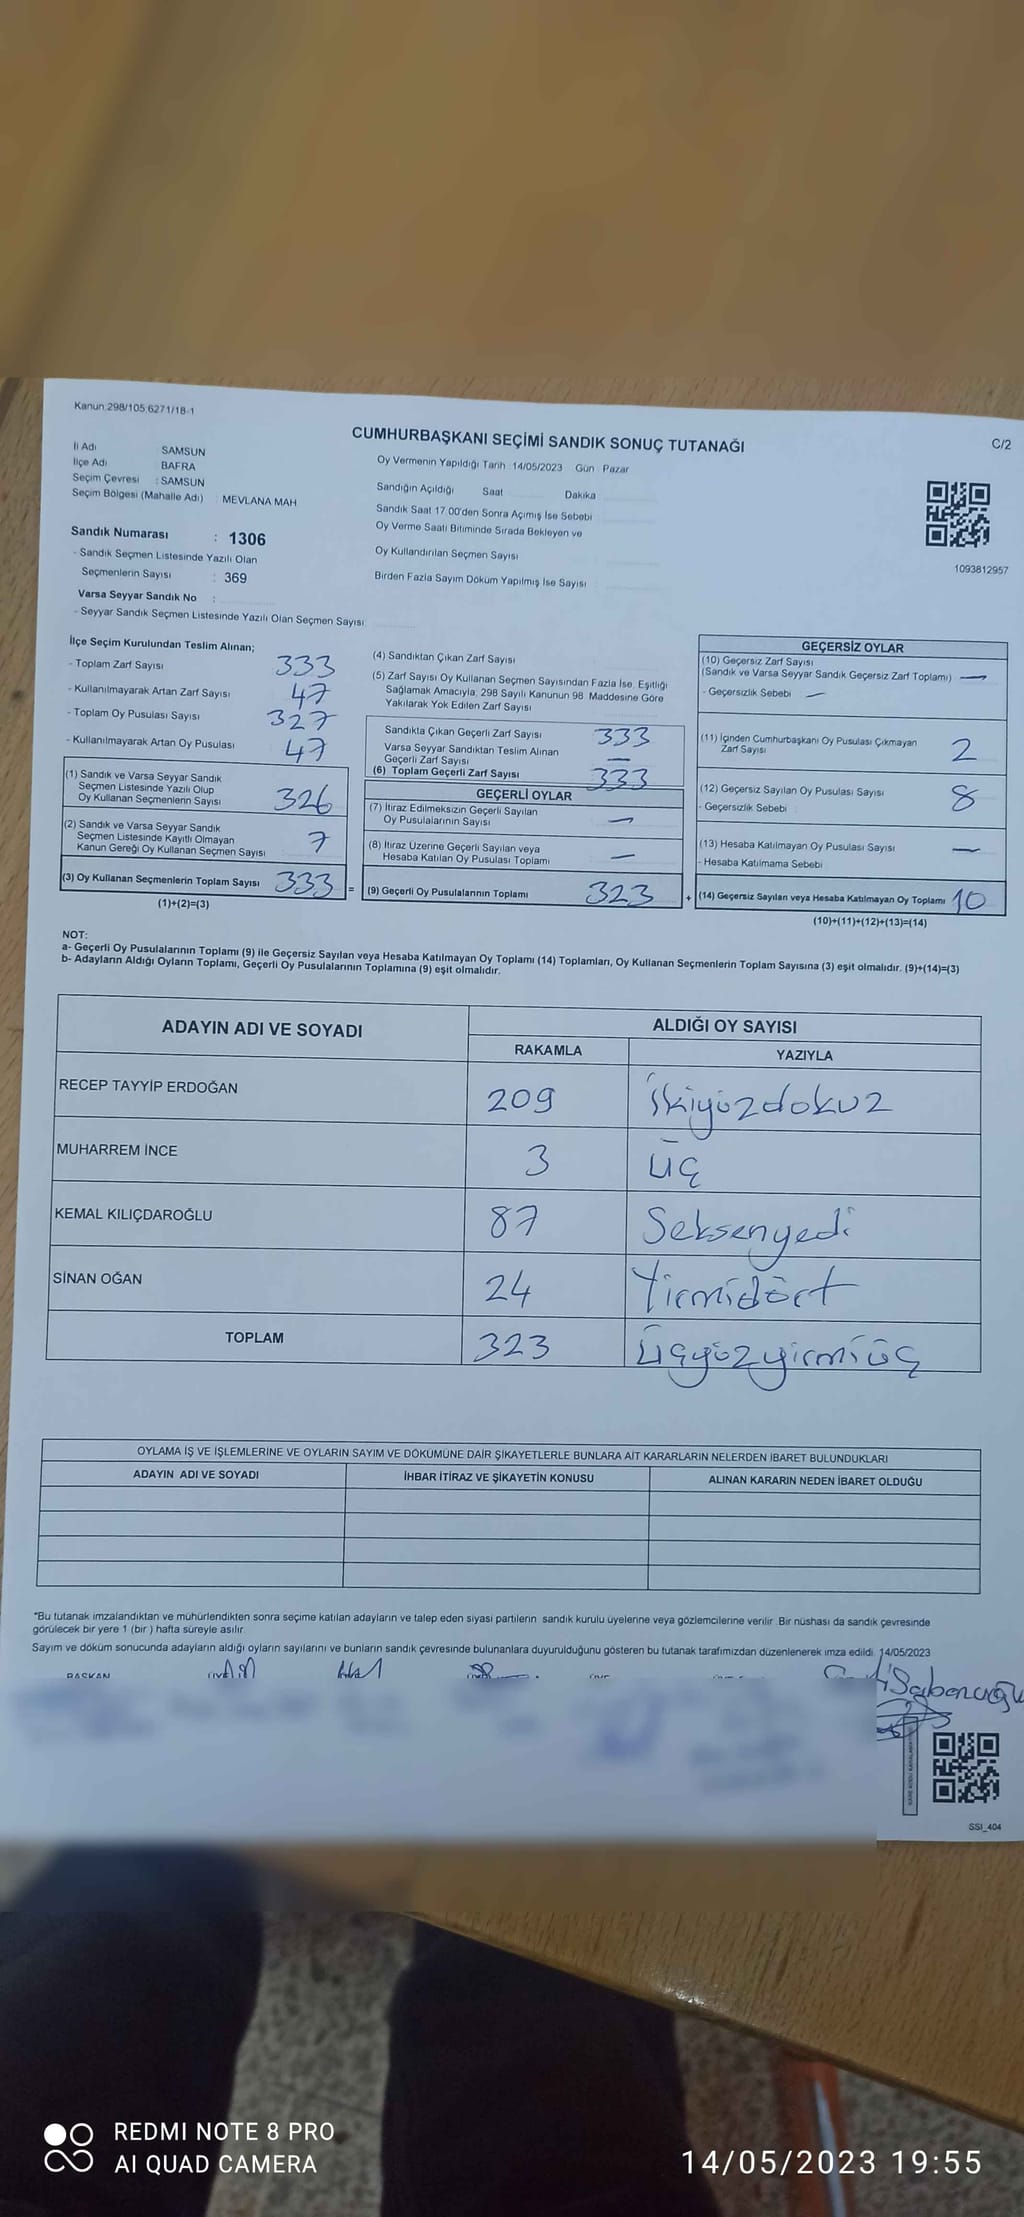 Kanun:298/105;6271/18-1
CUMHURBAŞKANI SEÇİMİ SANDIK SONUÇ TUTANAĞI
C/2
İli Adı : SAMSUN
İlçe Adı : BAFRA
Seçim Çevresi : SAMSUN
Seçim Bölgesi (Mahalle Adı) : MEVLANA MAH
Sandık Numarası : 1306
- Sandık Seçmen Listesinde Yazılı Olan
Seçmenlerin Sayısı : 369
Varsa Seyyar Sandık No :
- Seyyar Sandık Seçmen Listesinde Yazılı Olan Seçmen Sayısı
Oy Vermenin Yapıldığı Tarih : 14/05/2023 Gün : Pazar
Sandığın Açıldığı Saat Dakika
Sandık Saat 17:00'den Sonra Açımış İse Sebebi
Oy Verme Saati Bitiminde Sırada Bekleyen ve
Oy Kullandırılan Seçmen Sayısı
Birden Fazla Sayım Döküm Yapılmış İse Sayısı
1093812957
İlçe Seçim Kurulundan Teslim Alınan;
- Toplam Zarf Sayısı 333
- Kullanılmayarak Artan Zarf Sayısı 47
- Toplam Oy Pusulası Sayısı 327
- Kullanılmayarak Artan Oy Pusulası 47
(1) Sandık ve Varsa Seyyar Sandık
Seçmen Listesinde Yazılı Olup
Oy Kullanan Seçmenlerin Sayısı 326
(2) Sandık ve Varsa Seyyar Sandık
Seçmen Listesinde Kayıtlı Olmayan
Kanun Gereği Oy Kullanan Seçmen Sayısı 7
(3) Oy Kullanan Seçmenlerin Toplam Sayısı 333 =
(1)+(2)=(3)
(4) Sandıktan Çıkan Zarf Sayısı
(5) Zarf Sayısı Oy Kullanan Seçmen Sayısından Fazla İse, Eşitliği
Sağlamak Amacıyla, 298 Sayılı Kanunun 98. Maddesine Göre
Yakılarak Yok Edilen Zarf Sayısı
Sandıkta Çıkan Geçerli Zarf Sayısı 333
Varsa Seyyar Sandıktan Teslim Alınan
Geçerli Zarf Sayısı —
(6) Toplam Geçerli Zarf Sayısı 333
GEÇERLİ OYLAR
(7) İtiraz Edilmeksizin Geçerli Sayılan
Oy Pusulalarının Sayısı —
(8) İtiraz Üzerine Geçerli Sayılan veya
Hesaba Katılan Oy Pusulası Toplamı —
(9) Geçerli Oy Pusulalarının Toplamı 323 +
GEÇERSİZ OYLAR
(10) Geçersiz Zarf Sayısı
(Sandık ve Varsa Seyyar Sandık Geçersiz Zarf Toplamı) —
- Geçersizlik Sebebi —
(11) İçinden Cumhurbaşkanı Oy Pusulası Çıkmayan
Zarf Sayısı 2
(12) Geçersiz Sayılan Oy Pusulası Sayısı 8
- Geçersizlik Sebebi :
(13) Hesaba Katılmayan Oy Pusulası Sayısı —
- Hesaba Katılmama Sebebi
(14) Geçersiz Sayılan veya Hesaba Katılmayan Oy Toplamı 10
(10)+(11)+(12)+(13)=(14)
NOT:
a- Geçerli Oy Pusulalarının Toplamı (9) ile Geçersiz Sayılan veya Hesaba Katılmayan Oy Toplamı (14) Toplamları, Oy Kullanan Seçmenlerin Toplam Sayısına (3) eşit olmalıdır. (9)+(14)=(3)
b- Adayların Aldığı Oyların Toplamı, Geçerli Oy Pusulalarının Toplamına (9) eşit olmalıdır.
ADAYIN ADI VE SOYADI ALDIĞI OY SAYISI
RAKAMLA YAZIYLA
RECEP TAYYİP ERDOĞAN 209 İkiyüzdokuz
MUHARREM İNCE 3 üç
KEMAL KILIÇDAROĞLU 87 Seksenyedi
SİNAN OĞAN 24 Yirmidört
TOPLAM 323 Üçyüzyirmiüç
OYLAMA İŞ VE İŞLEMLERİNE VE OYLARIN SAYIM VE DÖKÜMÜNE DAİR ŞİKAYETLERLE BUNLARA AİT KARARLARIN NELERDEN İBARET BULUNDUKLARI
ADAYIN ADI VE SOYADI İHBAR İTİRAZ VE ŞİKAYETİN KONUSU ALINAN KARARIN NEDEN İBARET OLDUĞU
*Bu tutanak imzalandıktan ve mühürlendikten sonra seçime katılan adayların ve talep eden siyasi partilerin sandık kurulu üyelerine veya gözlemcilerine verilir. Bir nüshası da sandık çevresinde
görülecek bir yere 1 (bir ) hafta süreyle asılır.
Sayım ve döküm sonucunda adayların aldığı oyların sayılarını ve bunların sandık çevresinde bulunanlara duyurulduğunu gösteren bu tutanak tarafımızdan düzenlenerek imza edildi. 14/05/2023
BAŞKAN
SSI_404
REDMI NOTE 8 PRO
AI QUAD CAMERA
14/05/2023 19:55